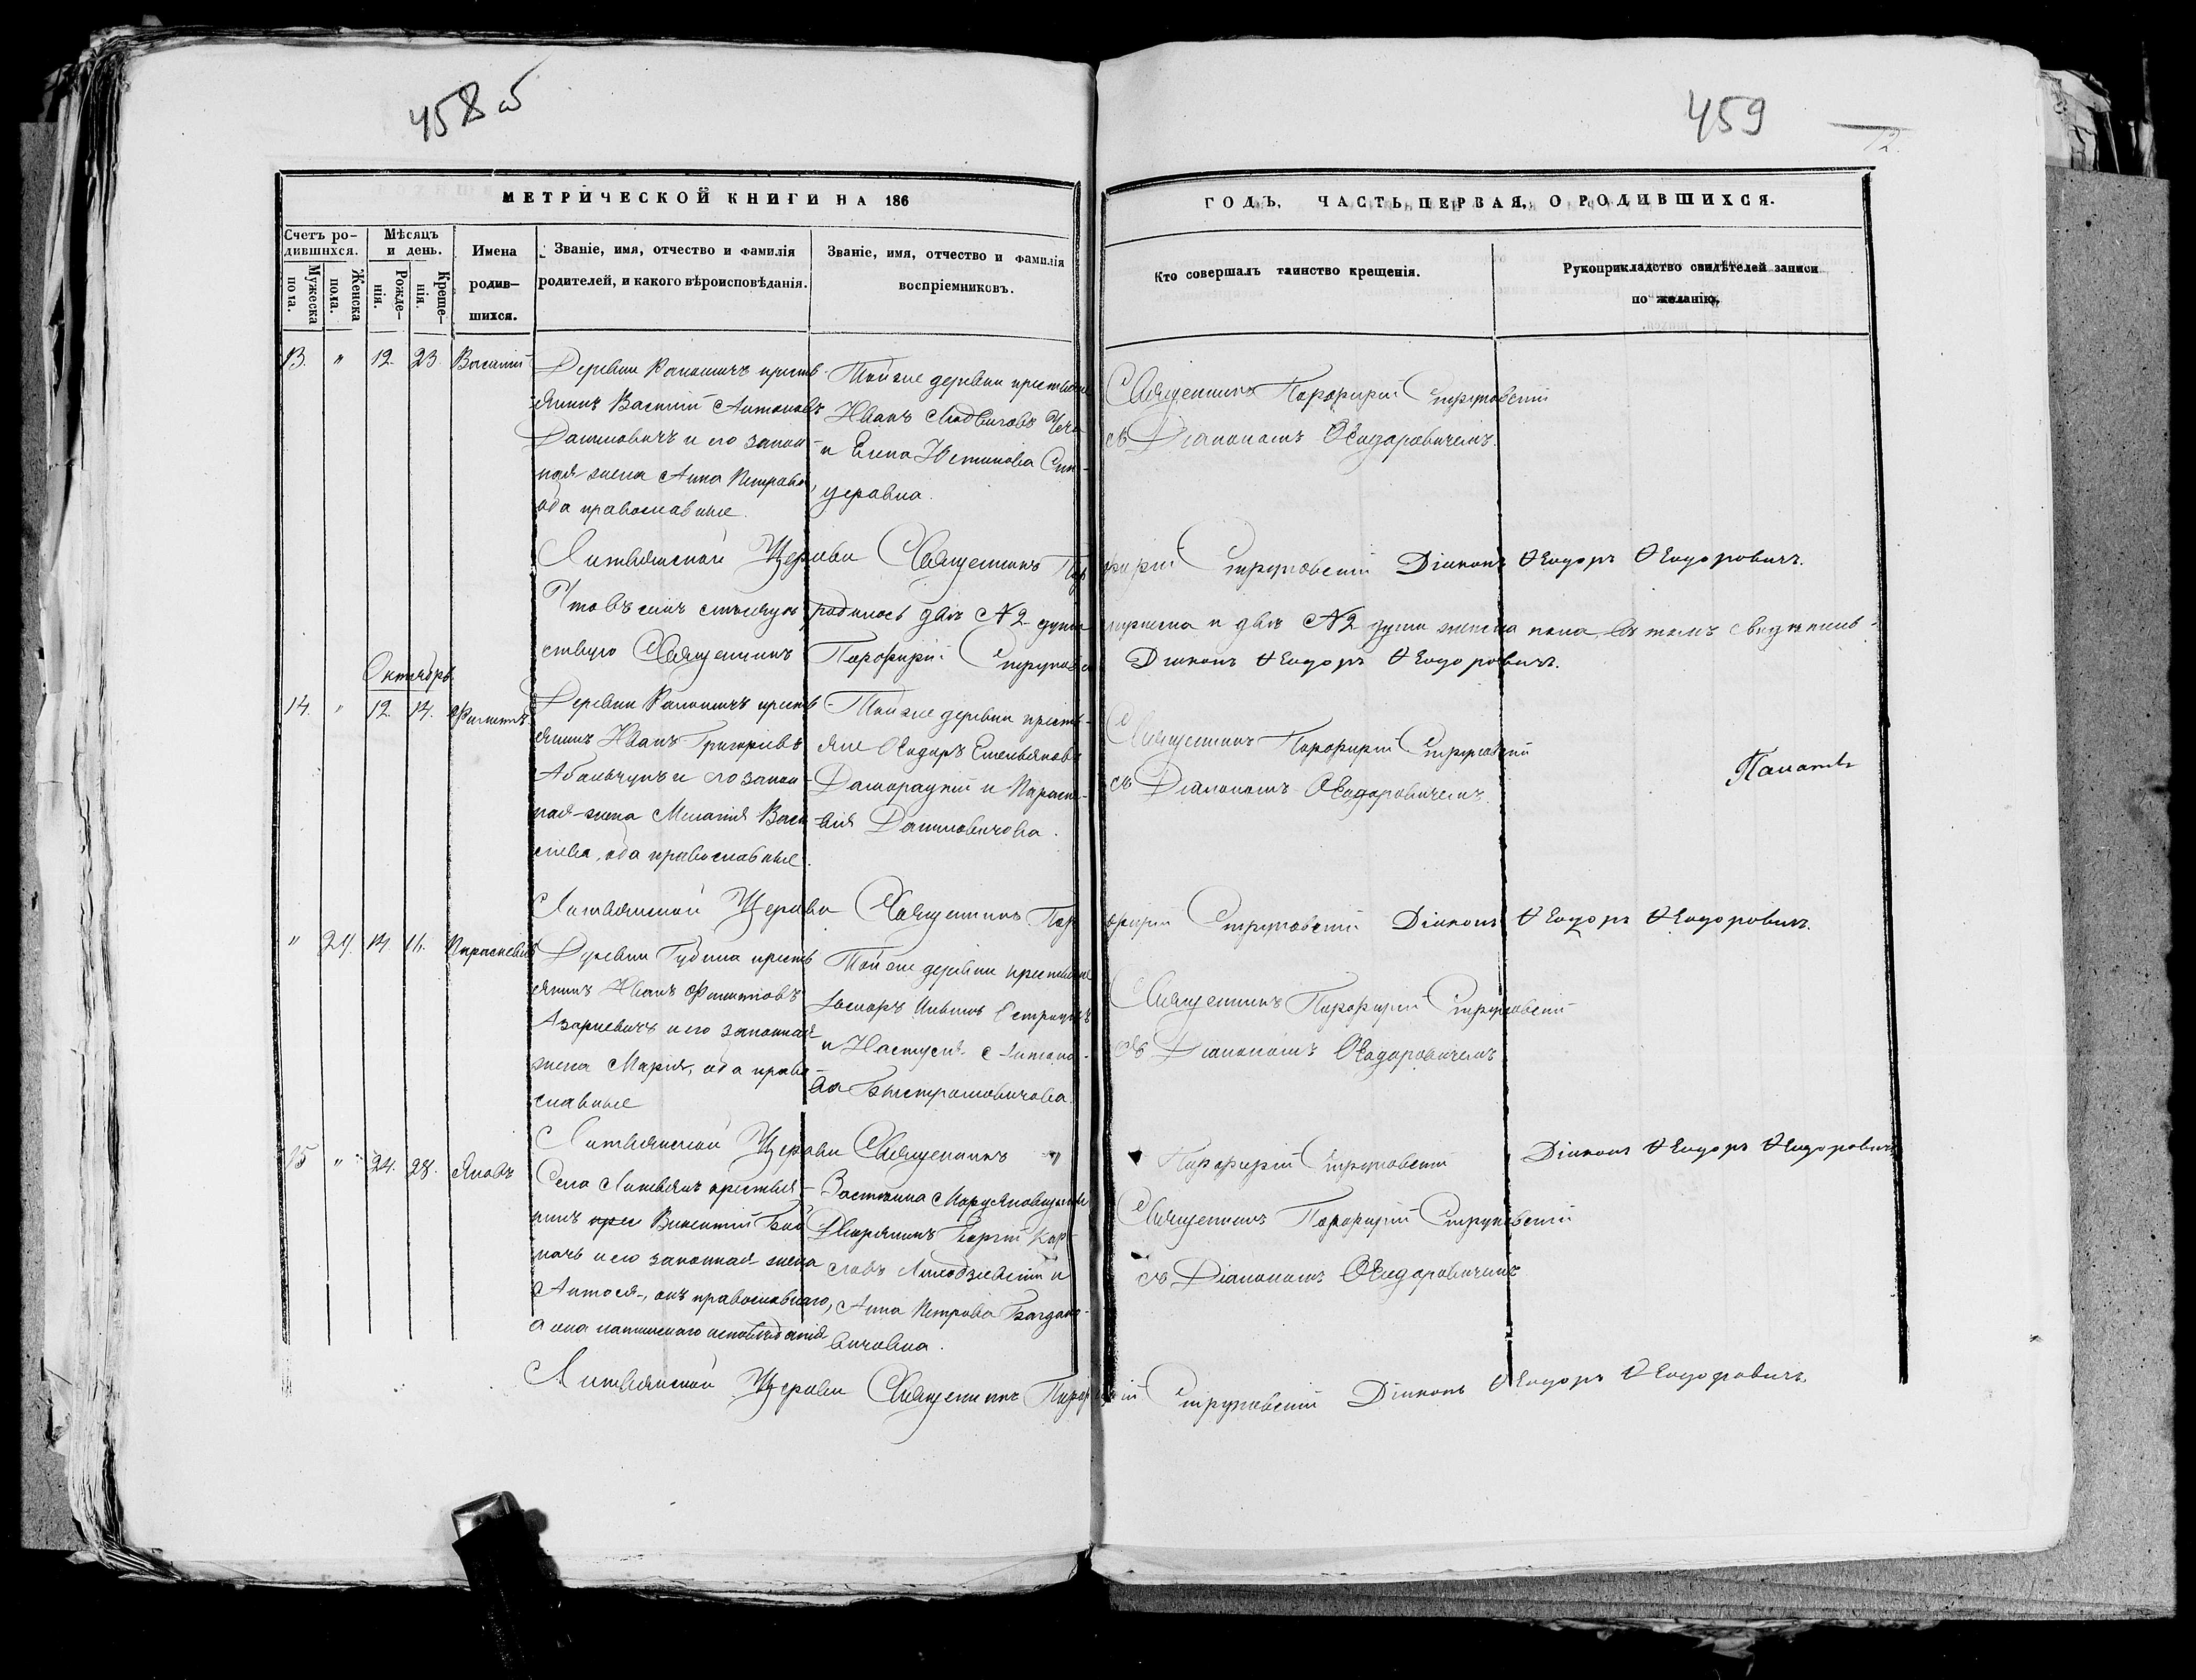 458 об
459
12.
МЕТРИЧЕСКОЙ КНИГИ НА 186
ГОДЪ, ЧАСТЬ ПЕРВАЯ, О РОДИВШИХСЯ.
Счетъ родившихся.
Мужеска пола.
Женска пола.
Мѣсяцъ и день.
Рожденія.
Крещенія.
Имена родившихся.
Званіе, имя, отчество и фамилія
родителей, и какого вѣроисповѣданія.
Званіе, имя, отчество и фамилія
воспріемниковъ.
Кто совершалъ таинство крещенія.
Рукоприкладство свидѣтелей записи
по желанію.
13. " 12. 23. Василій
Деревни крестъ-
янинъ Василій Антоновъ
Даниловичъ и его закон-
ная жена Анна Петрова,
оба православные.
Той же деревни крестьяне
Иванъ Людвиговъ
и Елена Устинова
Священникъ Порфирій Струковскій
съ Діакономъ Ѳеодоровичемъ.
Литвянской Церкви Священникъ Порфирій Струковскій Діаконъ Ѳеодоръ Ѳеодоровичъ.
Что въ семъ родилось двѣ № 2 души мужеска и двѣ № 2 души женска пола въ томъ свидѣтель-
ствую Священникъ Порфирій Діаконъ Ѳеодоръ Ѳеодоровичъ.
Октябрь
14. " 12. 14. Филиппъ
Деревни крестъ-
янинъ Иванъ Григорьевъ
и его закон-
ная жена Меланія Васи-
льева, оба православные.
Той же деревни кресть-
яне Ѳеодоръ Емельяновъ
Даморацкій и Параске-
вія Даниловичова.
Священникъ Порфирій Струковскій
съ Діакономъ Ѳеодоровичемъ.
Литвянской Церкви Священникъ Порфирій Струковскій Діаконъ Ѳеодоръ Ѳеодоровичъ.
" 24. 14. Параскевія
Деревни крестъ-
янинъ Иванъ Филипповъ
Азаревичъ и его законная
жена Марія, оба право-
славные
Той же деревни крестьяне
и Настусія Антоно-
ва Быстромовичова.
Священникъ Порфирій Струковскій
съ Діакономъ Ѳеодоровичемъ
Литвянской Церкви Священникъ Порфирій Струковскій Діаконъ Ѳеодоръ Ѳеодоровичъ
15 " 24. 28. Яковъ
Села Литвянъ крестья-
нинъ Викентій
и его законная жена
Антося, онъ православнаго,
а она исповѣданія
Дворянинъ Георгій
и
Анна Петрова Богдано-
вичовна.
Священникъ Порфирій Струковскій
съ Діакономъ Ѳеодоровичемъ
Литвянской Церкви Священникъ Порфирій Струковскій Діаконъ Ѳеодоръ Ѳеодоровичъ